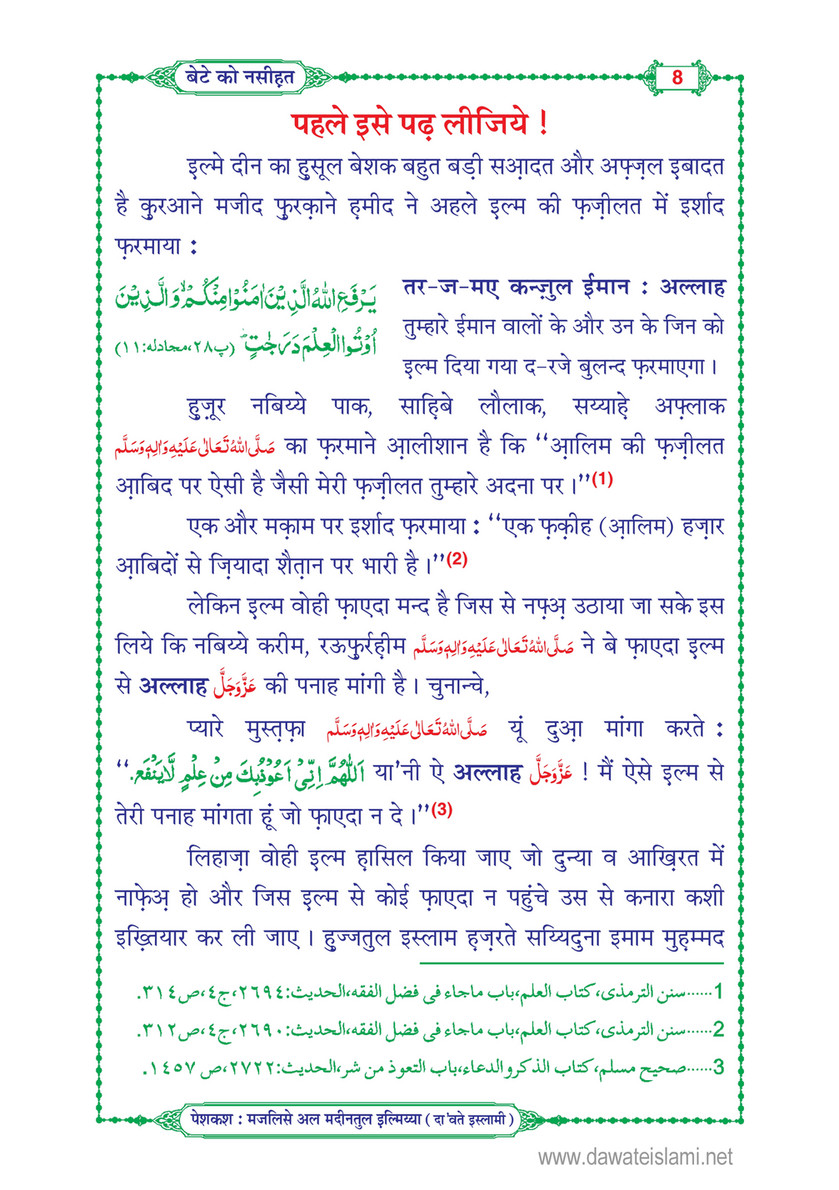 बेटे को नसीह़त
8
पहले इसे पढ़ लीजिये !
इ़ल्मे दीन का ह़ुसूल बेशक बहुत बड़ी सआ़दत और अफ़्ज़ल इ़बादत
है क़ुरआने मजीद फ़ुरक़ाने ह़मीद ने अहले इ़ल्म की फ़ज़ीलत में इर्शाद
फ़रमाया :
یَرْفَعِ اللّٰهُ الَّذِیْنَ اٰمَنُوْا مِنْكُمْۙ وَ الَّذِیْنَ
اُوْتُوا الْعِلْمَ دَرَجٰتٍؕ (پ۲۸،مجادلہ:۱۱)
तर-ज-मए कन्ज़ुल ईमान : अल्लाह
तुम्हारे ईमान वालों के और उन के जिन को
इ़ल्म दिया गया द-रजे बुलन्द फ़रमाएगा ।
ह़ुज़ूर नबिय्ये पाक, साह़िबे लौलाक, सय्याह़े अफ़्लाक
صَلَّی اللّٰهُ تَعَالٰی عَلَیْهِ وَاٰلِهٖ وَسَلَّم का फ़रमाने आ़लीशान है कि ‘‘आ़लिम की फ़ज़ीलत
आ़बिद पर ऐसी है जैसी मेरी फ़ज़ीलत तुम्हारे अदना पर ।’’(1)
एक और मक़ाम पर इर्शाद फ़रमाया : ‘‘एक फ़क़ीह (आ़लिम) हज़ार
आ़बिदों से ज़ियादा शैत़ान पर भारी है ।’’(2)
लेकिन इ़ल्म वोही फ़ाएदा मन्द है जिस से नफ़्अ़ उठाया जा सके इस
लिये कि नबिय्ये करीम, रऊफ़ुर्रह़ीम صَلَّی اللّٰهُ تَعَالٰی عَلَیْهِ وَاٰلِهٖ وَسَلَّم ने बे फ़ाएदा इ़ल्म
से अल्लाह عَزَّوَجَلَّ की पनाह मांगी है । चुनान्चे,
प्यारे मुस्त़फ़ा صَلَّی اللّٰهُ تَعَالٰی عَلَیْهِ وَاٰلِهٖ وَسَلَّم यूं दुआ़ मांगा करते :
‘‘اَللّٰهُمَّ اِنِّیْ اَعُوْذُبِكَ مِنْ عِلْمٍ لَّا یَنْفَع. या'नी ऐ अल्लाह عَزَّوَجَلَّ ! मैं ऐसे इ़ल्म से
तेरी पनाह मांगता हूं जो फ़ाएदा न दे ।’’(3)
लिहाज़ा वोही इ़ल्म ह़ासिल किया जाए जो दुन्या व आख़िरत में
नाफ़ेअ़ हो और जिस इ़ल्म से कोई फ़ाएदा न पहुंचे उस से कनारा कशी
इख़्तियार कर ली जाए । ह़ुज्जतुल इस्लाम ह़ज़रते सय्यिदुना इमाम मुह़म्मद
1......سنن الترمذی،کتاب العلم،باب ماجاء فی فضل الفقه،الحدیث:۲۶۹۴،ج۴،ص۳۱۴.
2......سنن الترمذی،کتاب العلم،باب ماجاء فی فضل الفقه،الحدیث:۲۶۹۰،ج۴،ص۳۱۲.
3......صحیح مسلم،کتاب الذکر والدعاء،باب التعوذ من شر،الحدیث:۲۷۲۲،ص ۱۴۵۷.
पेशकश : मजलिसे अल मदीनतुल इ़ल्मिय्या ( दा'वते इस्लामी )
www.dawateislami.net